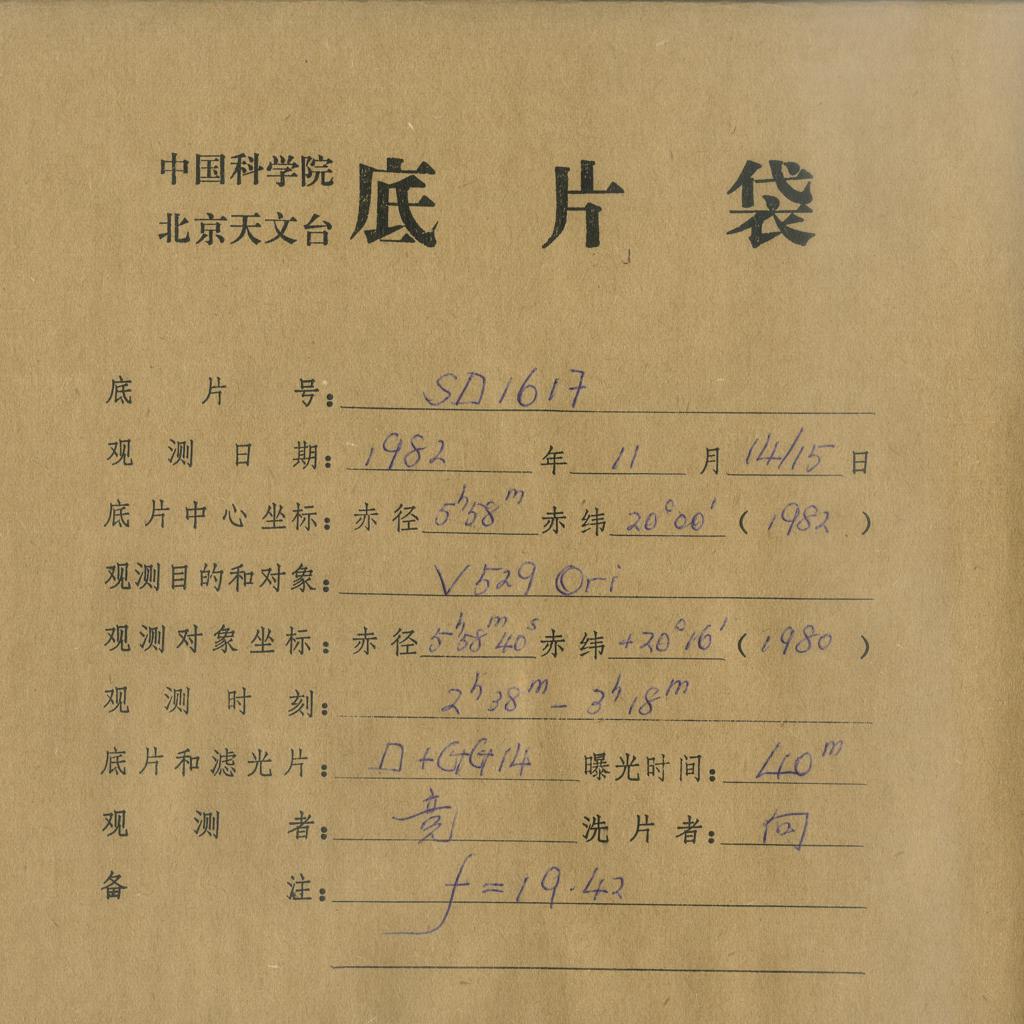 中国科学院
北京天文台
底片袋
底片号: SD1617
观测日期: 1982 年 11 月 14/15 日
底片中心坐标: 赤径 5ʰ58ᵐ 赤纬 20°00′ (1982)
观测目的和对象: V529 Ori
观测对象坐标: 赤径 5ʰ58ᵐ40ˢ 赤纬 +20°16′ (1980)
观测时刻: 2ʰ38ᵐ – 3ʰ18ᵐ
底片和滤光片: D+GG14 曝光时间: 40ᵐ
观测者: 竞 洗片者: 向
备注: f=19.42